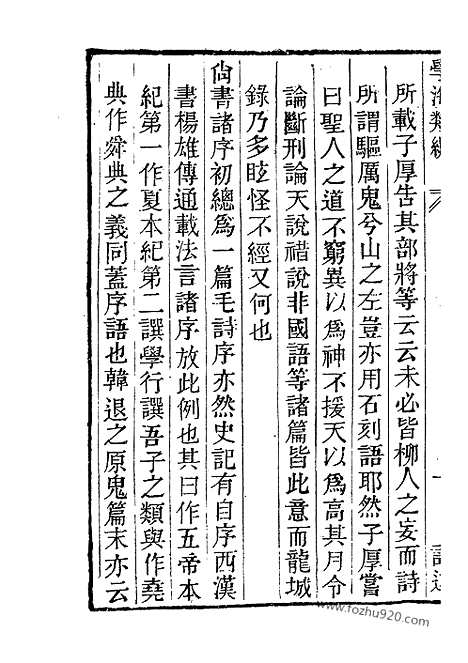 學海類編
所載子厚吿其部將等云云未必皆柳人之妄而詩
所謂驅厲鬼兮山之左豈亦用石刻語耶然子厚嘗
曰聖人之道不窮異以爲神不援天以爲高其月令
論斷刑論天說䄍說非國語等諸篇皆此意而龍城
錄乃多眩怪不經又何也
尙書諸序初總爲一篇毛詩序亦然史記有自序西漢
書楊雄傳通載法言諸序放此例也其曰作五帝本
紀第一作夏本紀第二譔學行譔吾子之類與作堯
典作舜典之義同蓋序語也韓退之原鬼篇末亦云
www.fozhu920.com